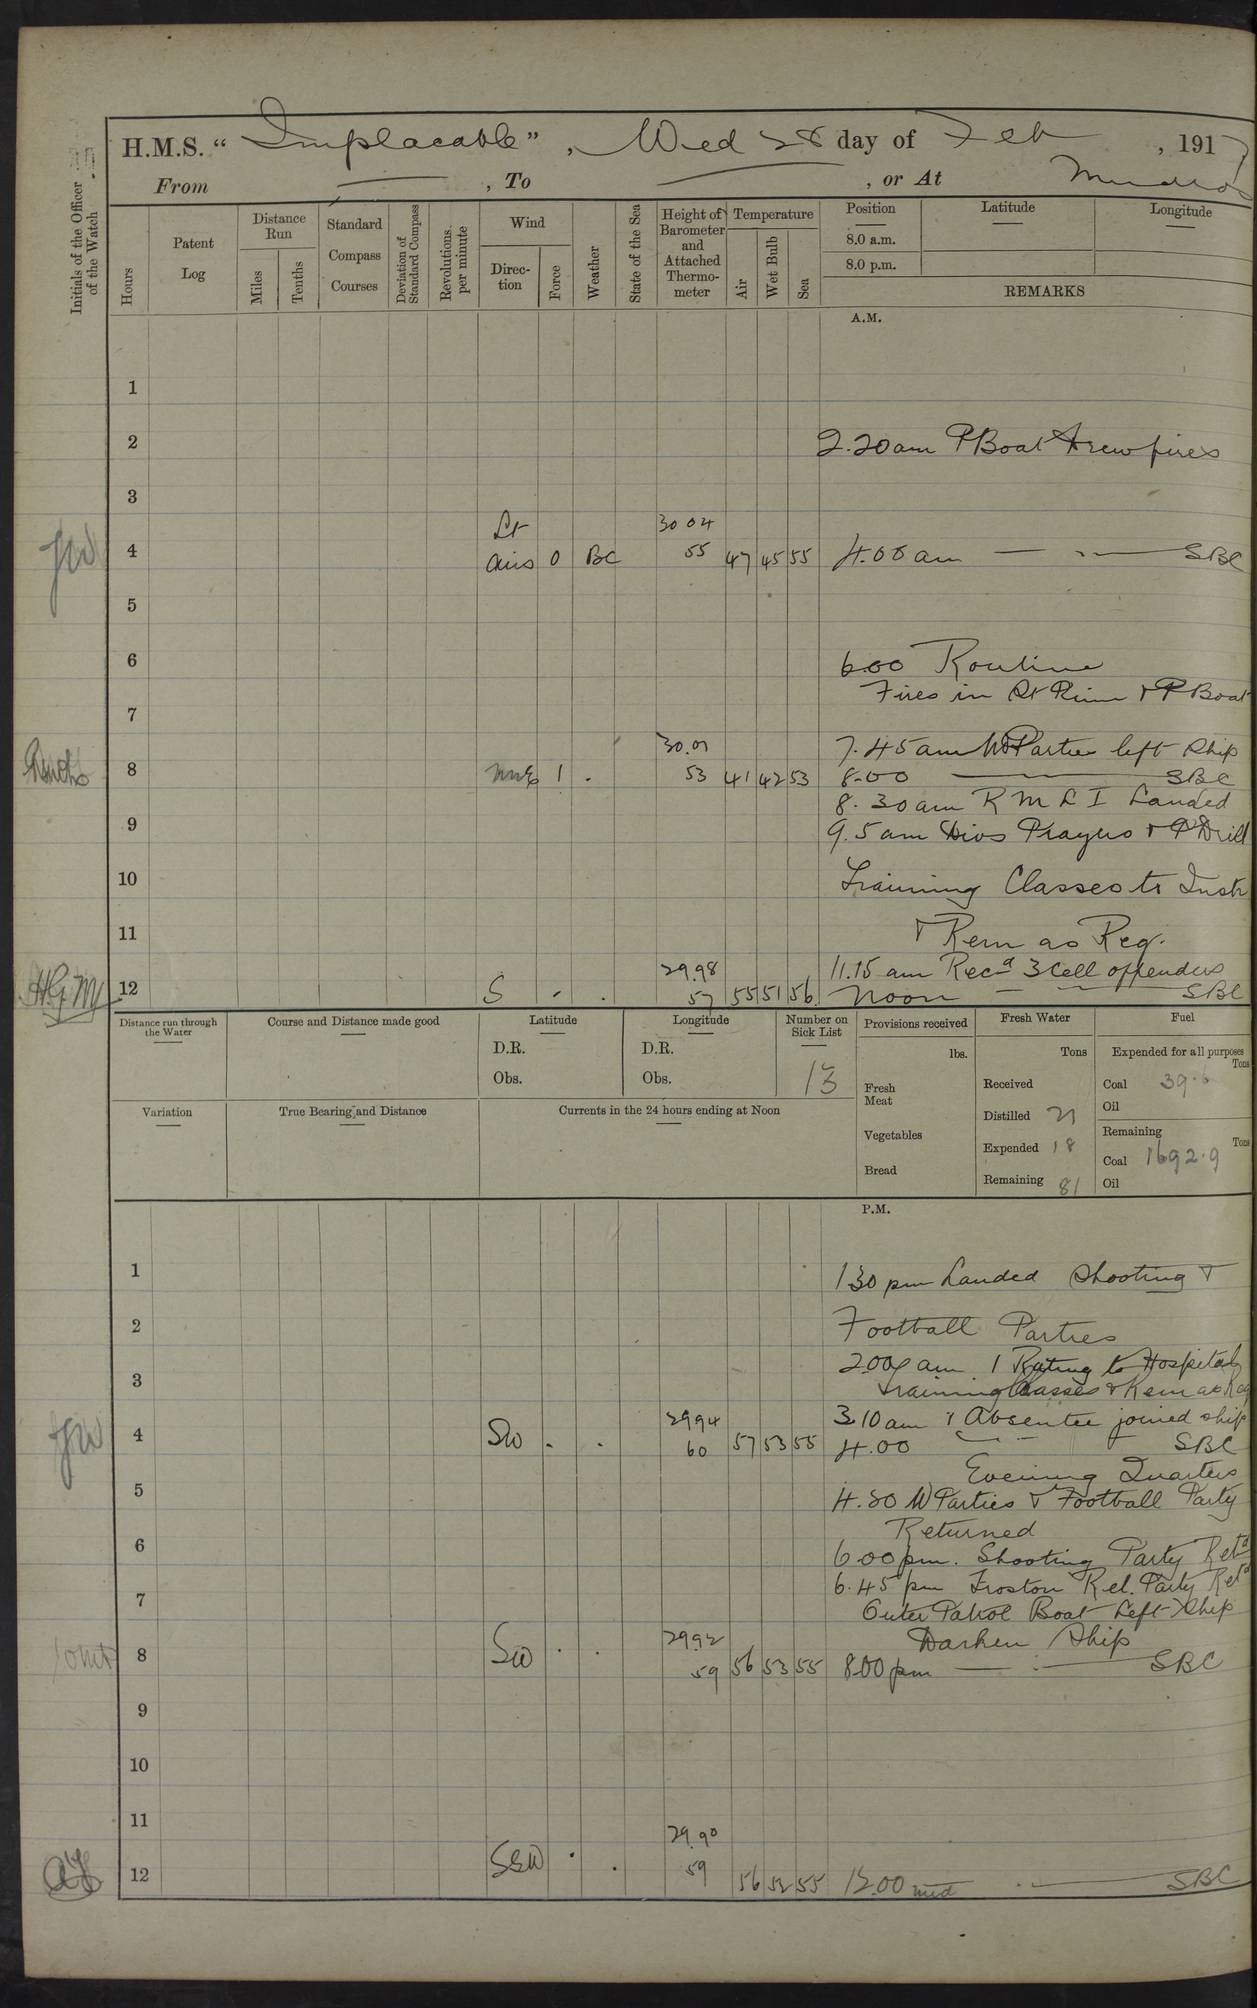 H.M.S. “Implacable”, Wed 28 day of Feb, 1917
From — , To — , or At Mudros
Initials of the Officer of the Watch
Hours
Patent Log
Distance Run
Miles
Tenths
Standard Compass Courses
Deviation of Standard Compass
Revolutions per minute
Wind
Direction
Force
Weather
State of the Sea
Height of Barometer and Attached Thermometer
Temperature
Air
Wet Bulb
Sea
Position
8.0 a.m.
8.0 p.m.
Latitude
Longitude
REMARKS
A.M.
1
2 2.20am PBoat drew fires
3
Lt 30 04
4 airs 0 BC 55 47 45 55 4.00 am — " — SBC
5
6 6.00 Routine
Fires in St Pinn & P Boat
7
30.01 7.45 am W Parties left Ship
8 NNE 1 . 53 41 42 53 8.00 — SBC
8.30am R M L I Landed
9 9.5 am Divs Prayers & P Drill
10 Training Classes to Instr
11 & Rem as Req.
29.98 11.15 am Recd 3 Cell offenders
HGM 12 S . . 57 55 51 56 Noon — " — SBC
Distance run through the Water
Course and Distance made good
Latitude
D.R.
Obs.
Longitude
D.R.
Obs.
Number on Sick List
13
Provisions received
lbs.
Fresh Meat
Vegetables
Bread
Fresh Water
Tons
Received
Distilled 21
Expended 18
Remaining 81
Fuel
Expended for all purposes
Tons
Coal 39.6
Oil
Remaining
Tons
Coal 1692.9
Oil
Variation
True Bearing and Distance
Currents in the 24 hours ending at Noon
P.M.
1 1 30 pm Landed Shooting &
2 Football Parties
2.00 am 1 Rating to Hospital
3 Training Classes & Rem as Req
29 94 3.10 am 1 Absentee joined ship
4 SW . . 60 57 53 55 4.00 — SBC
Evening Quarters
5 4.30 W Parties & Football Party
Returned
6 6.00 pm. Shooting Party Retd
6.45 pm Froston Rel. Party Retd
7 Outer Patrol Boat Left Ship
29.92 Darken Ship
8 SW . . 59 56 53 55 8.00 pm — SBC
9
10
11
29.90
12 SSW . . 59 56 52 55 12.00 mid — SBC